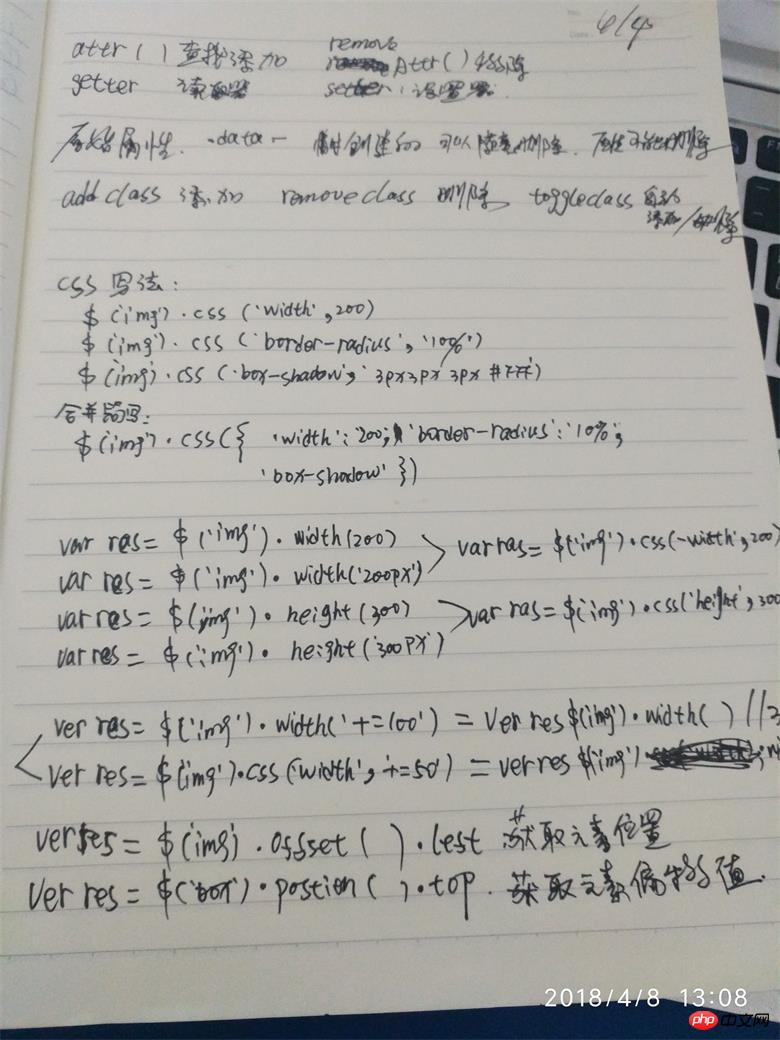 4/4
attr ( ) 查找添加 remove Attr ( ) 移除
getter 读取器 setter 设置器.
原始属性. -data- 创建的 可以随意删除. 不能删除
addclass 添加 removeclass 删除 toggleclass 自动添加/删除
css 写法:
$ ('img') . css ('width', 200)
$ ('img') . css ('border-radius', '10%')
$ (img) . css ('box-shadow', 3px 3px 3px #777')
合并简写:
$ (img') . css ({ 'width': '200; 'border-radius': '10%;
'box-shadow' })
var res = $ ('img') . width (200)
var res = $ ('img') . width ('200px')
var ras = $('img') . css (-width', 200)
var res = $ (img') . height (300)
var res = $ ('img') . height ('300px')
var ras = $('img') . css ('height', 300
ver res = $ ('img') . width ('+=100') = Ver res $(img') . width ( ) //
ver res = $ (img') . css ('width', +=50') = ver res $(img')
ver res = $ (img) . Offset ( ) . lest 获取元素位置
Ver res = $ ('box') . postion ( ) . top . 获取元素偏移值.
2018/4/8 13:08
php 中文网